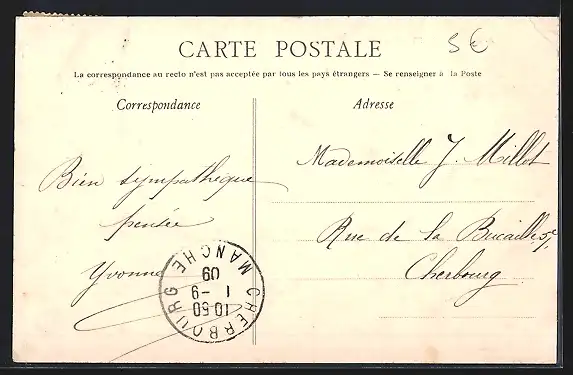 5€
CARTE POSTALE
La correspondance au recto n'est pas acceptée par tous les pays étrangers — Se renseigner à la Poste
Correspondance
Adresse
Bien sympathique
pensée
Yvonne
Mademoiselle J. Millot
Rue de la Bucaille
Cherbourg
CHERBOURG
MANCHE
10 50
1 - 9
09